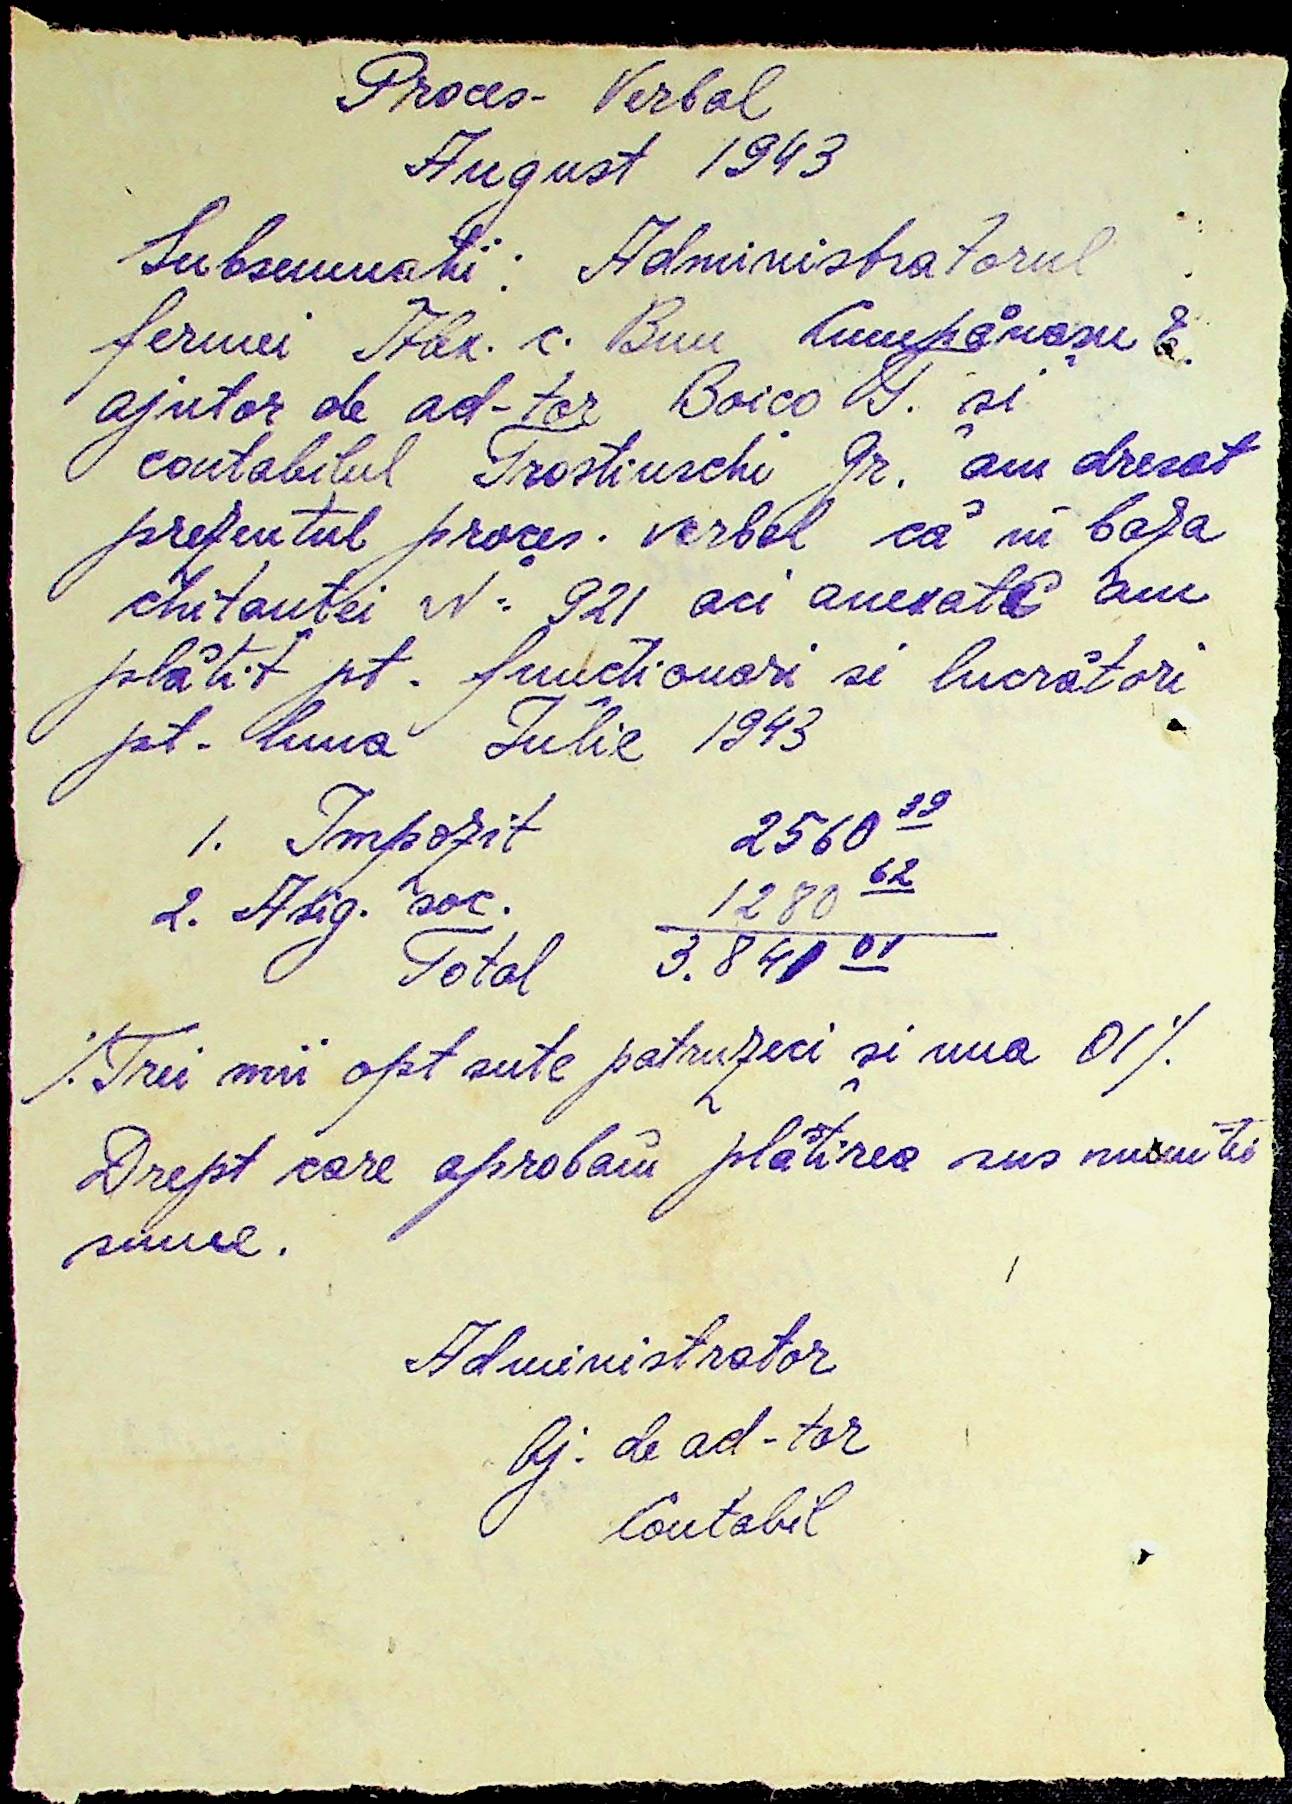 Proces-Verbal
August 1943
Subsemnatii: Administratorul
fermei Alex. c. Bun Cumpănașu E.
ajutor de ad-tor Boico T. și
contabilul Trostinschi Gr. am dresat
prezentul proces-verbal că în baza
chitantei No 921 aci anexate am
plătit pt. functionari si lucrători
pt. luna Iulie 1943
1. Impozit 2560 39
2. Asig. soc. 1280 62
Total 3.841 01
./. Trei mii opt sute patruzeci și una 01 ./.
Drept care aprobăm plătirea sus numitei
sume.
Administrator
Aj. de ad-tor
Contabil